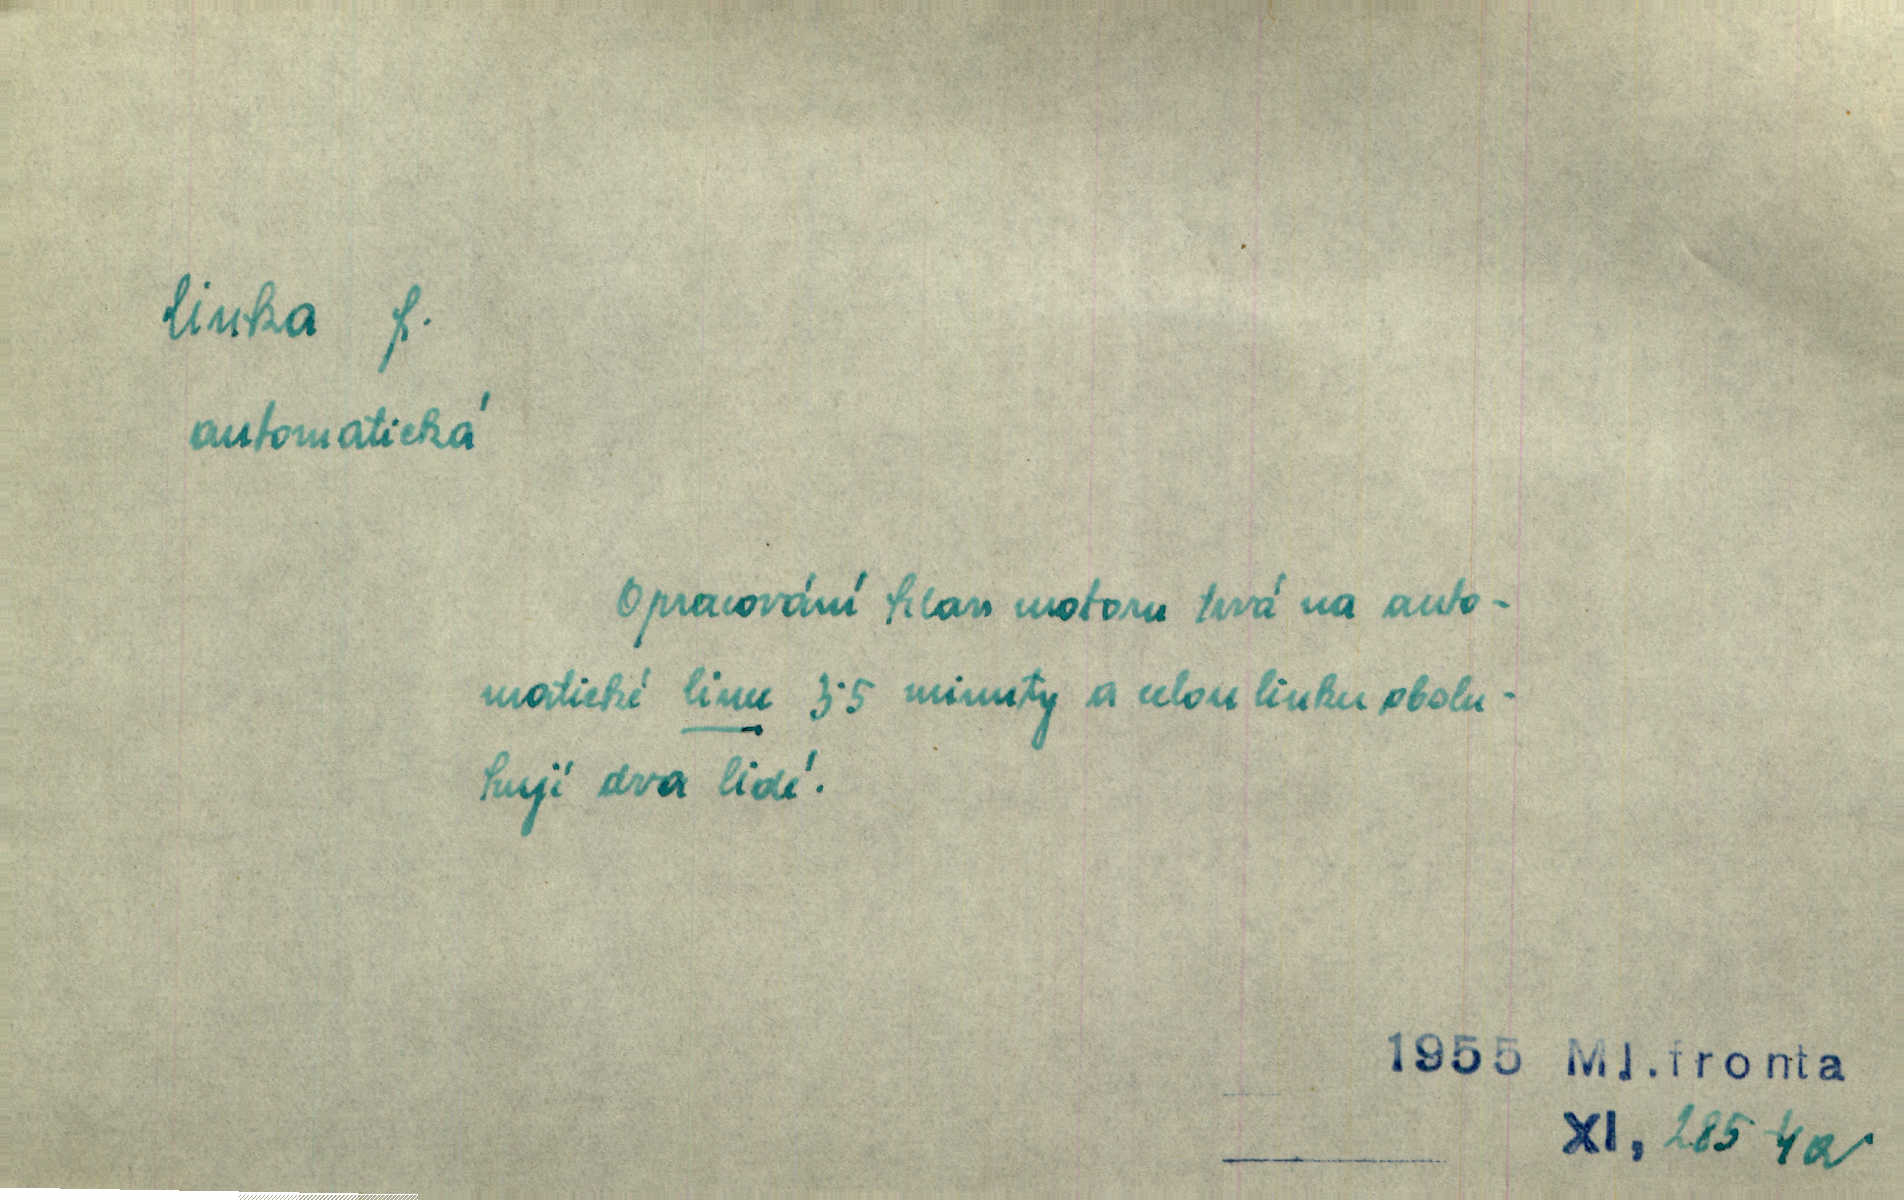 linka f.
automatická
Opracování hlav motoru trvá na auto-
matické lince 3·5 minuty a celou linku obslu-
hují dva lidé.
1955 Ml.fronta
XI, 285 4a